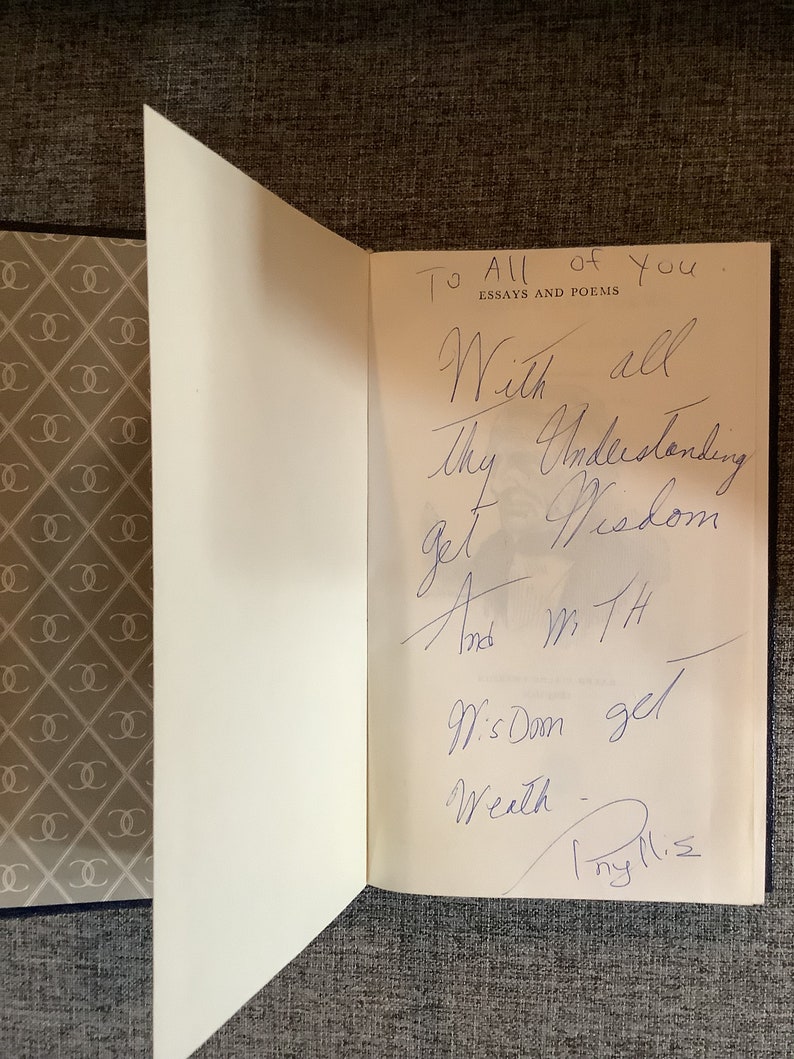 To All of You.
ESSAYS AND POEMS
With all
thy Understanding
get Wisdom
And WiTH
WisDom get
Weath -
Phyllis